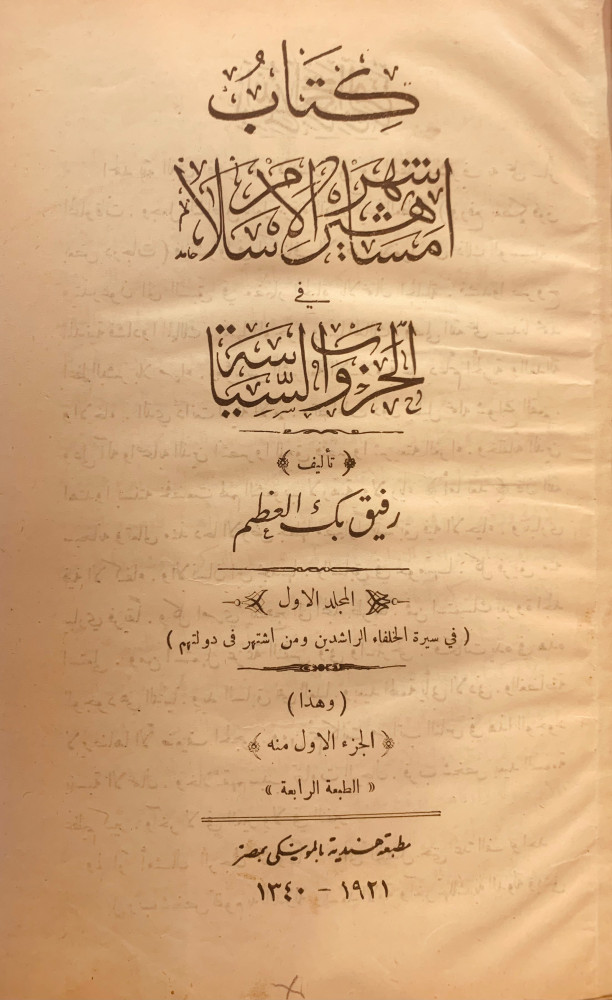 كتاب
اشهر مشاهير الاسلام
حامد
في
الحرب والسياسة
﴿ تأليف ﴾
رفيق بك العظم
المجلد الاول
( في سيرة الخلفاء الراشدين ومن اشتهر في دولتهم )
( وهذا )
﴿ الجزء الاول منه ﴾
« الطبعة الرابعة »
مطبعة هندية بالموسكي بمصر
١٩٢١ - ١٣٤٠